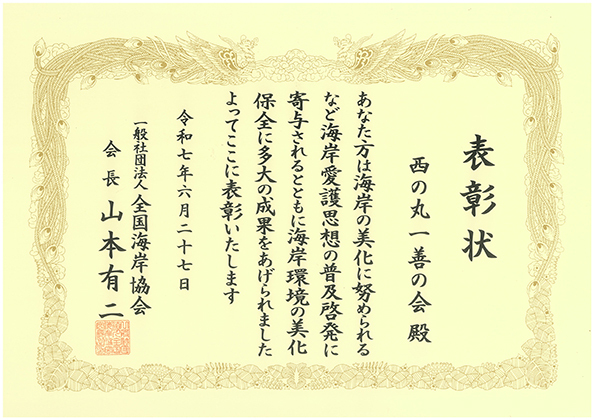 表彰状
西の丸一善の会 殿
あなた方は海岸の美化に努められる
など海岸愛護思想の普及啓発に
寄与されるとともに海岸環境の美化
保全に多大の成果をあげられました
よってここに表彰いたします
令和七年六月二十七日
一般社団法人 全国海岸協会
会長 山本有二